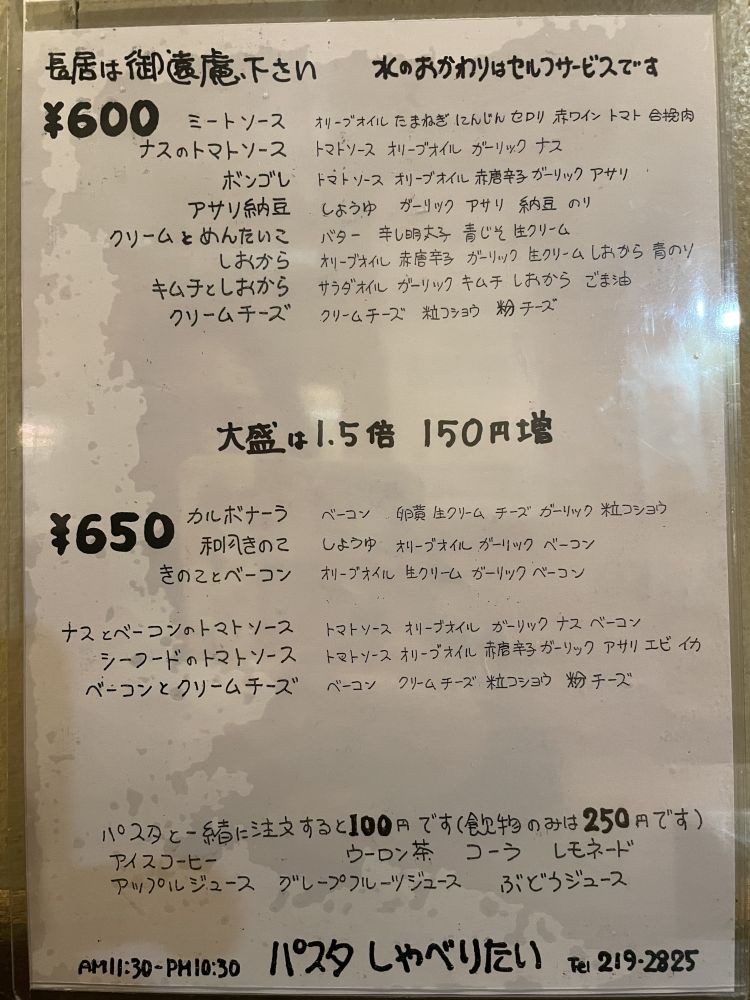 長居は御遠慮下さい 水のおかわりはセルフサービスです
¥600 ミートソース オリーブオイル たまねぎ にんじん セロリ 赤ワイン トマト 合挽肉
ナスのトマトソース トマトソース オリーブオイル ガーリック ナス
ボンゴレ トマトソース オリーブオイル 赤唐辛子 ガーリック アサリ
アサリ納豆 しょうゆ ガーリック アサリ 納豆 のり
クリームとめんたいこ バター 辛し明太子 青じそ 生クリーム
しおから オリーブオイル 赤唐辛子 ガーリック 生クリーム しおから 青のり
キムチとしおから サラダオイル ガーリック キムチ しおから ごま油
クリームチーズ クリームチーズ 粒コショウ 粉チーズ
大盛は1.5倍 150円増
¥650 カルボナーラ ベーコン 卵黄 生クリーム チーズ ガーリック 粒コショウ
和風きのこ しょうゆ オリーブオイル ガーリック ベーコン
きのことベーコン オリーブオイル 生クリーム ガーリック ベーコン
ナスとベーコンのトマトソース トマトソース オリーブオイル ガーリック ナス ベーコン
シーフードのトマトソース トマトソース オリーブオイル 赤唐辛子 ガーリック アサリ エビ イカ
ベーコンとクリームチーズ ベーコン クリームチーズ 粒コショウ 粉チーズ
パスタと一緒に注文すると100円です(飲物のみは250円です)
アイスコーヒー ウーロン茶 コーラ レモネード
アップルジュース グレープフルーツジュース ぶどうジュース
AM11:30-PM10:30 パスタ しゃべりたい Tel 219-2825